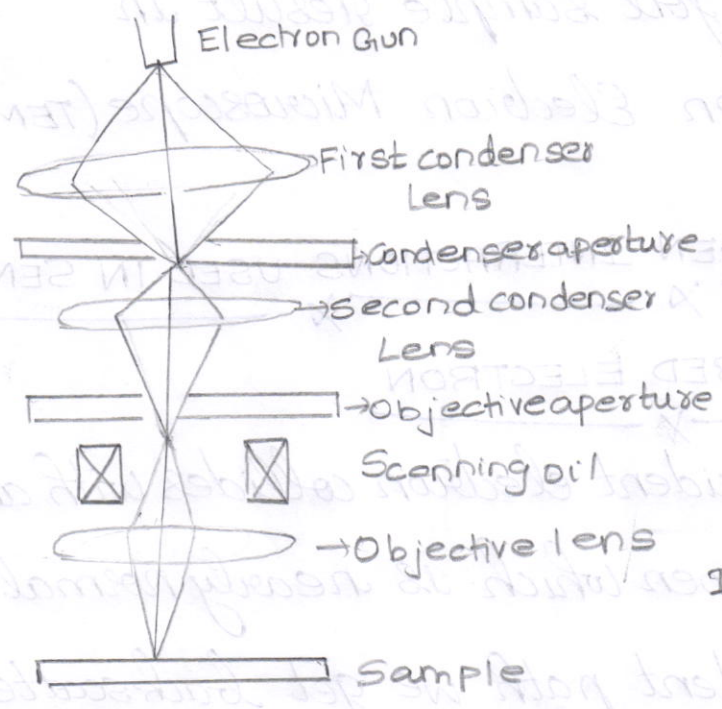 Electron Gun
First condenser
Lens
Condenser aperture
Second condenser
Lens
Objective aperture
Scanning oil
Objective lens
Sample